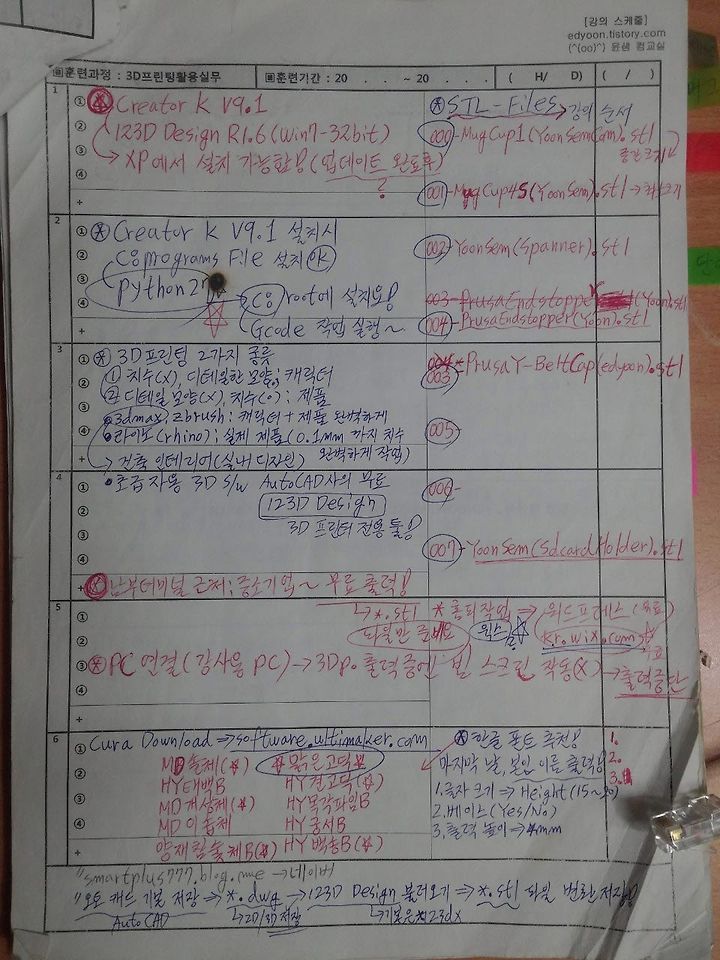 [강의 스케줄]
edyoon.tistory.com
(^(oo)^) 윤쌤 컴교실
▣훈련과정 : 3D프린팅활용실무 ▣훈련기간 : 20 . . ~ 20 . . . ( H/ D) ( / )
1
① ② ③ ④ +
Creator K V9.1
123D Design R1.6 (Win7-32bit)
→ XP에서 설치 가능함! (업데이트 완료후)
?
STL-Files → 강의 순서
000-MugCup1(YoonSemCom).stl
중간크기
001-MugCup45(YoonSem).stl →최소크기
2
① ② ③ ④ +
Creator K V9.1 설치시
C:\programs File 설치 OK
python27
C:\ root에 설치요!
Gcode 작업 실행~
002-YoonSem(Spanner).stl
003-PrusaEndstopper(Yoon).stl
004-PrusaEndstopper(Yoon).stl
3
① ② ③ ④ +
3D프린팅 2가지 종류
① 치수(X), 디테일한 모양: 캐릭터
② 디테일 모양(X), 치수(O): 제품
•3dmax, Zbrush: 캐릭터+제품 완벽하게
•라이노(rhino): 실제 제품(0.1mm 까지 치수
완벽하게 작업)
→ 건축 인테리어(실내 디자인)
004 PrusaY-BeltCap(edyoon).stl
003
005-
4
① ② ③ ④ +
•초급자용 3D S/W AutoCAD사의 무료
123D Design
3D 프린터 전용 툴!
남부터미널 근처: 중소기업~ 무료 출력!
006-
007-YoonSem(SdcardHolder).stl
5
① ② ③ ④ +
→*.stl
파일만 준비요
*홈피작업 ⇒ 워드프레스(무료)
윅스
kr.wix.com
무료
PC 연결(강사용 PC)→3Dp. 출력중에 빔 스크린 작동(X) →출력중단
6
① ② ③ ④ +
Cura Download ⇒software.ultimaker.com
MD솔체(☆)
☆맑은고딕☆
HY태백B
HY견고딕(☆)
MD개성체(☆)
HY목각파임B
MD이솝체
HY궁서B
양재참숯체B(☆)
HY백송B(☆)
한글 폰트 추천!
마지막 날, 본인 이름 출력!
1.글자 크기 → Height(15~20)
2.베이스(Yes/No)
3.출력 높이→4mm
1.
2.
3.
"smartplus777.blog.me →네이버
"오토 캐드 기본 저장 → *.dwg → 123D Design 불러오기 ⇒ *.stl 파일 변환 저장!
AutoCAD
→2D/3D 저장
→기본은 *.123dx